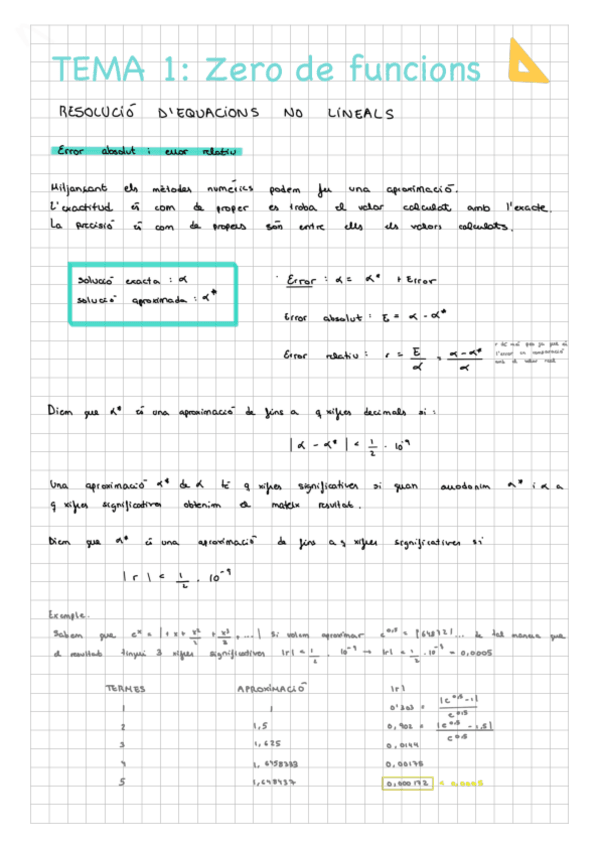 TEMA 1: Zero de funcions
RESOLUCIÓ D'EQUACIONS NO LINEALS
Error absolut i error relatiu
Mitjançant els mètodes numèrics podem fer una aproximació.
L'exactitud és com de proper es troba el valor calculat amb l'exacte.
La precisió és com de propers són entre ells els valors calculats.
solució exacta : α
solució aproximada : α*
Error : α = α* + Error
Error absolut : E = α - α*
Error relatiu : r = E/α = (α - α*)/α
r és més
l'error en comparació
amb el valor real
Diem que α* és una aproximació de fins a q xifres decimals si :
|α - α*| < 1/2 · 10^-q
Una aproximació α* de α té q xifres significatives si quan arrodonim α* i α a
q xifres significatives obtenim el mateix resultat.
Diem que α* és una aproximació de fins a q xifres significatives si
|r| < 1/2 · 10^-q
Exemple.
Sabem que e^x = |1 + x + x²/2 + x³/3 + ...| si volem aproximar e^0,5 = 1'648721... de tal manera que
el resultat tingui 3 xifres significatives |r| < 1/2 · 10^-q → |r| < 1/2 · 10^-3 = 0,0005
TERMES APROXIMACIÓ |r|
1 1 0'393 = |e^0,5 - 1|/e^0,5
2 1,5 0,902 = |e^0,5 - 1,5|/e^0,5
3 1,625 0,0144
4 1,6458333 0,00175
5 1,648437 0,000172 < 0,0005